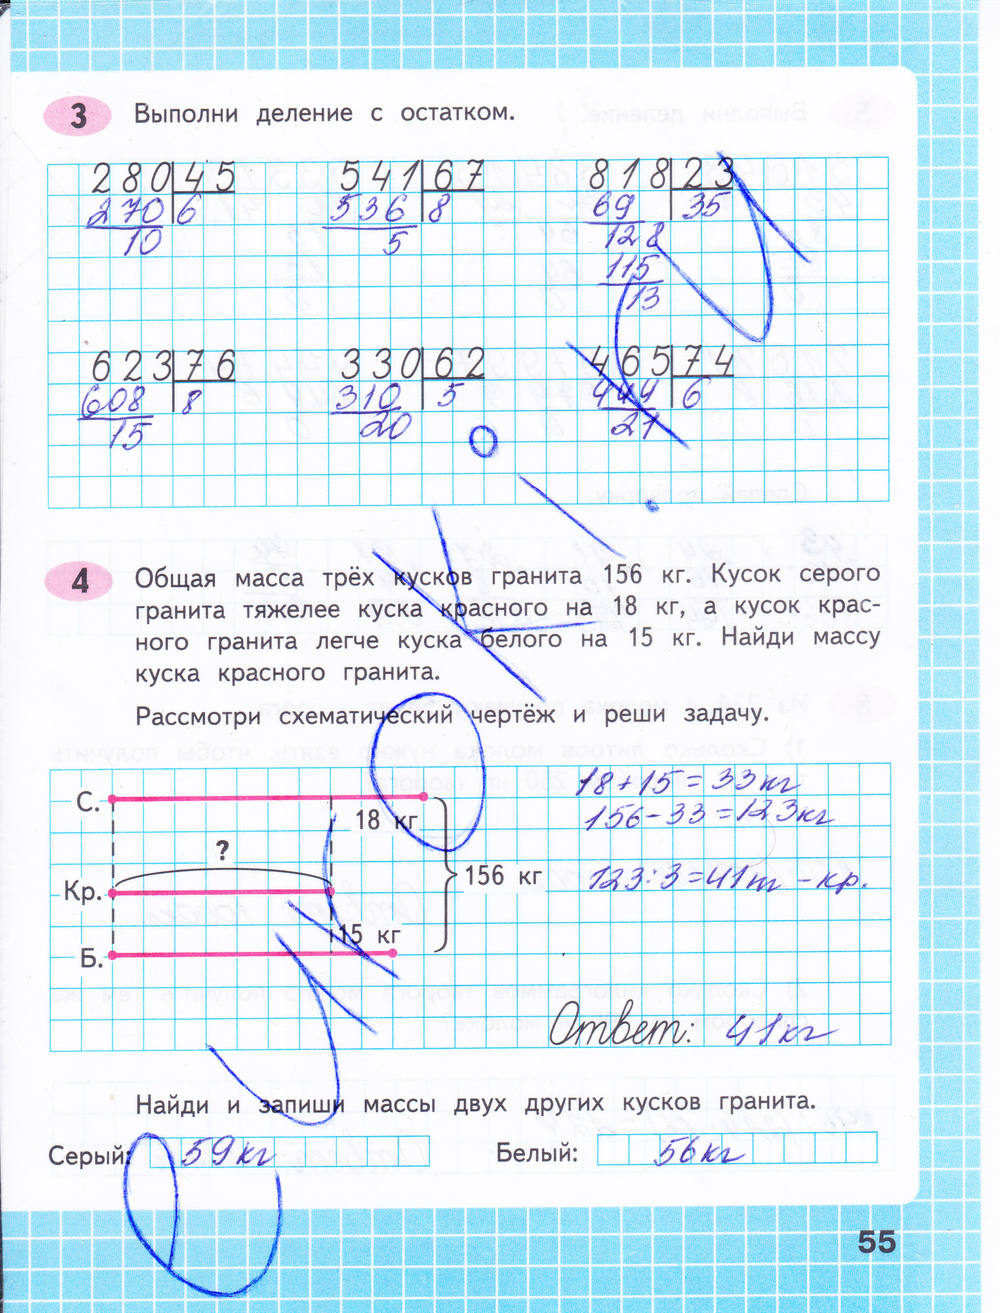 3 Выполни деление с остатком.
280 45 541 67 818 23
270 6 536 8 69 35
10 5 128
115
13
623 76 330 62 465 74
608 8 310 5 444 6
15 20 21
4 Общая масса трёх кусков гранита 156 кг. Кусок серого
гранита тяжелее куска красного на 18 кг, а кусок крас-
ного гранита легче куска белого на 15 кг. Найди массу
куска красного гранита.
Рассмотри схематический чертёж и реши задачу.
С.
18 кг
?
Кр.
156 кг
15 кг
Б.
18+15=33кг
156-33=123кг
123:3=41кг - кр.
Ответ: 41кг
Найди и запиши массы двух других кусков гранита.
Серый: 59кг Белый: 56кг
55